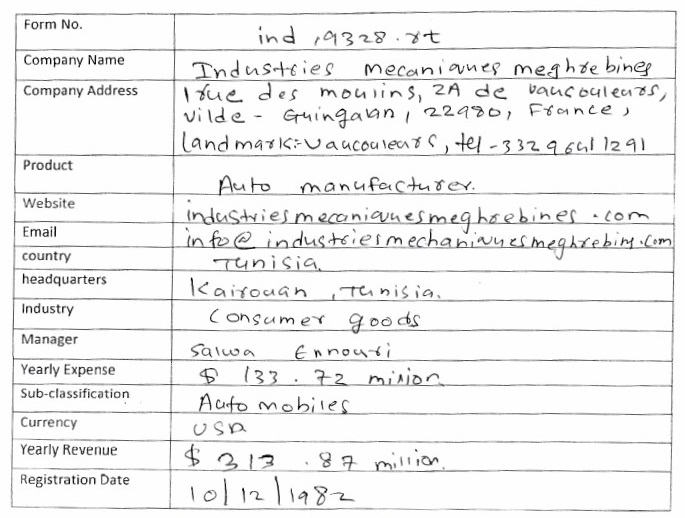 Form No. ind ,9328.rt
Company Name Industries mecaniques meghrebines
Company Address 1 rue des moulins, ZA de vaucouleurs,
vilde - Guingalan, 22980, France,
Landmark:- Vaucouleurs, tel - 332 9641 1291
Product Auto manufacturer.
Website industriesmecaniquesmeghrebines.com
Email info@industriesmechaniquesmeghrebins.com
country Tunisia
headquarters Kairouan, Tunisia.
Industry Consumer goods
Manager Salwa Ennouri
Yearly Expense $ 133.72 million
Sub-classification Automobiles
Currency USD
Yearly Revenue $ 313.87 million.
Registration Date 10/12/1982